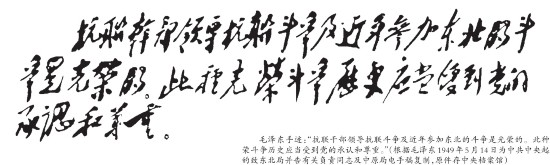 抗联干部领导抗联斗爭及近年参加东北的斗
爭是光荣的。此种光荣斗爭历史应当受到党的
承认和尊重。
毛泽东手迹:“抗联干部领导抗联斗争及近年参加东北的斗争是光荣的。此种光
荣斗争历史应当受到党的承认和尊重。”(根据毛泽东1949年5月14日为中共中央起草
的致东北局并告有关负责同志及中原局电手稿复制,原件存中央档案馆)